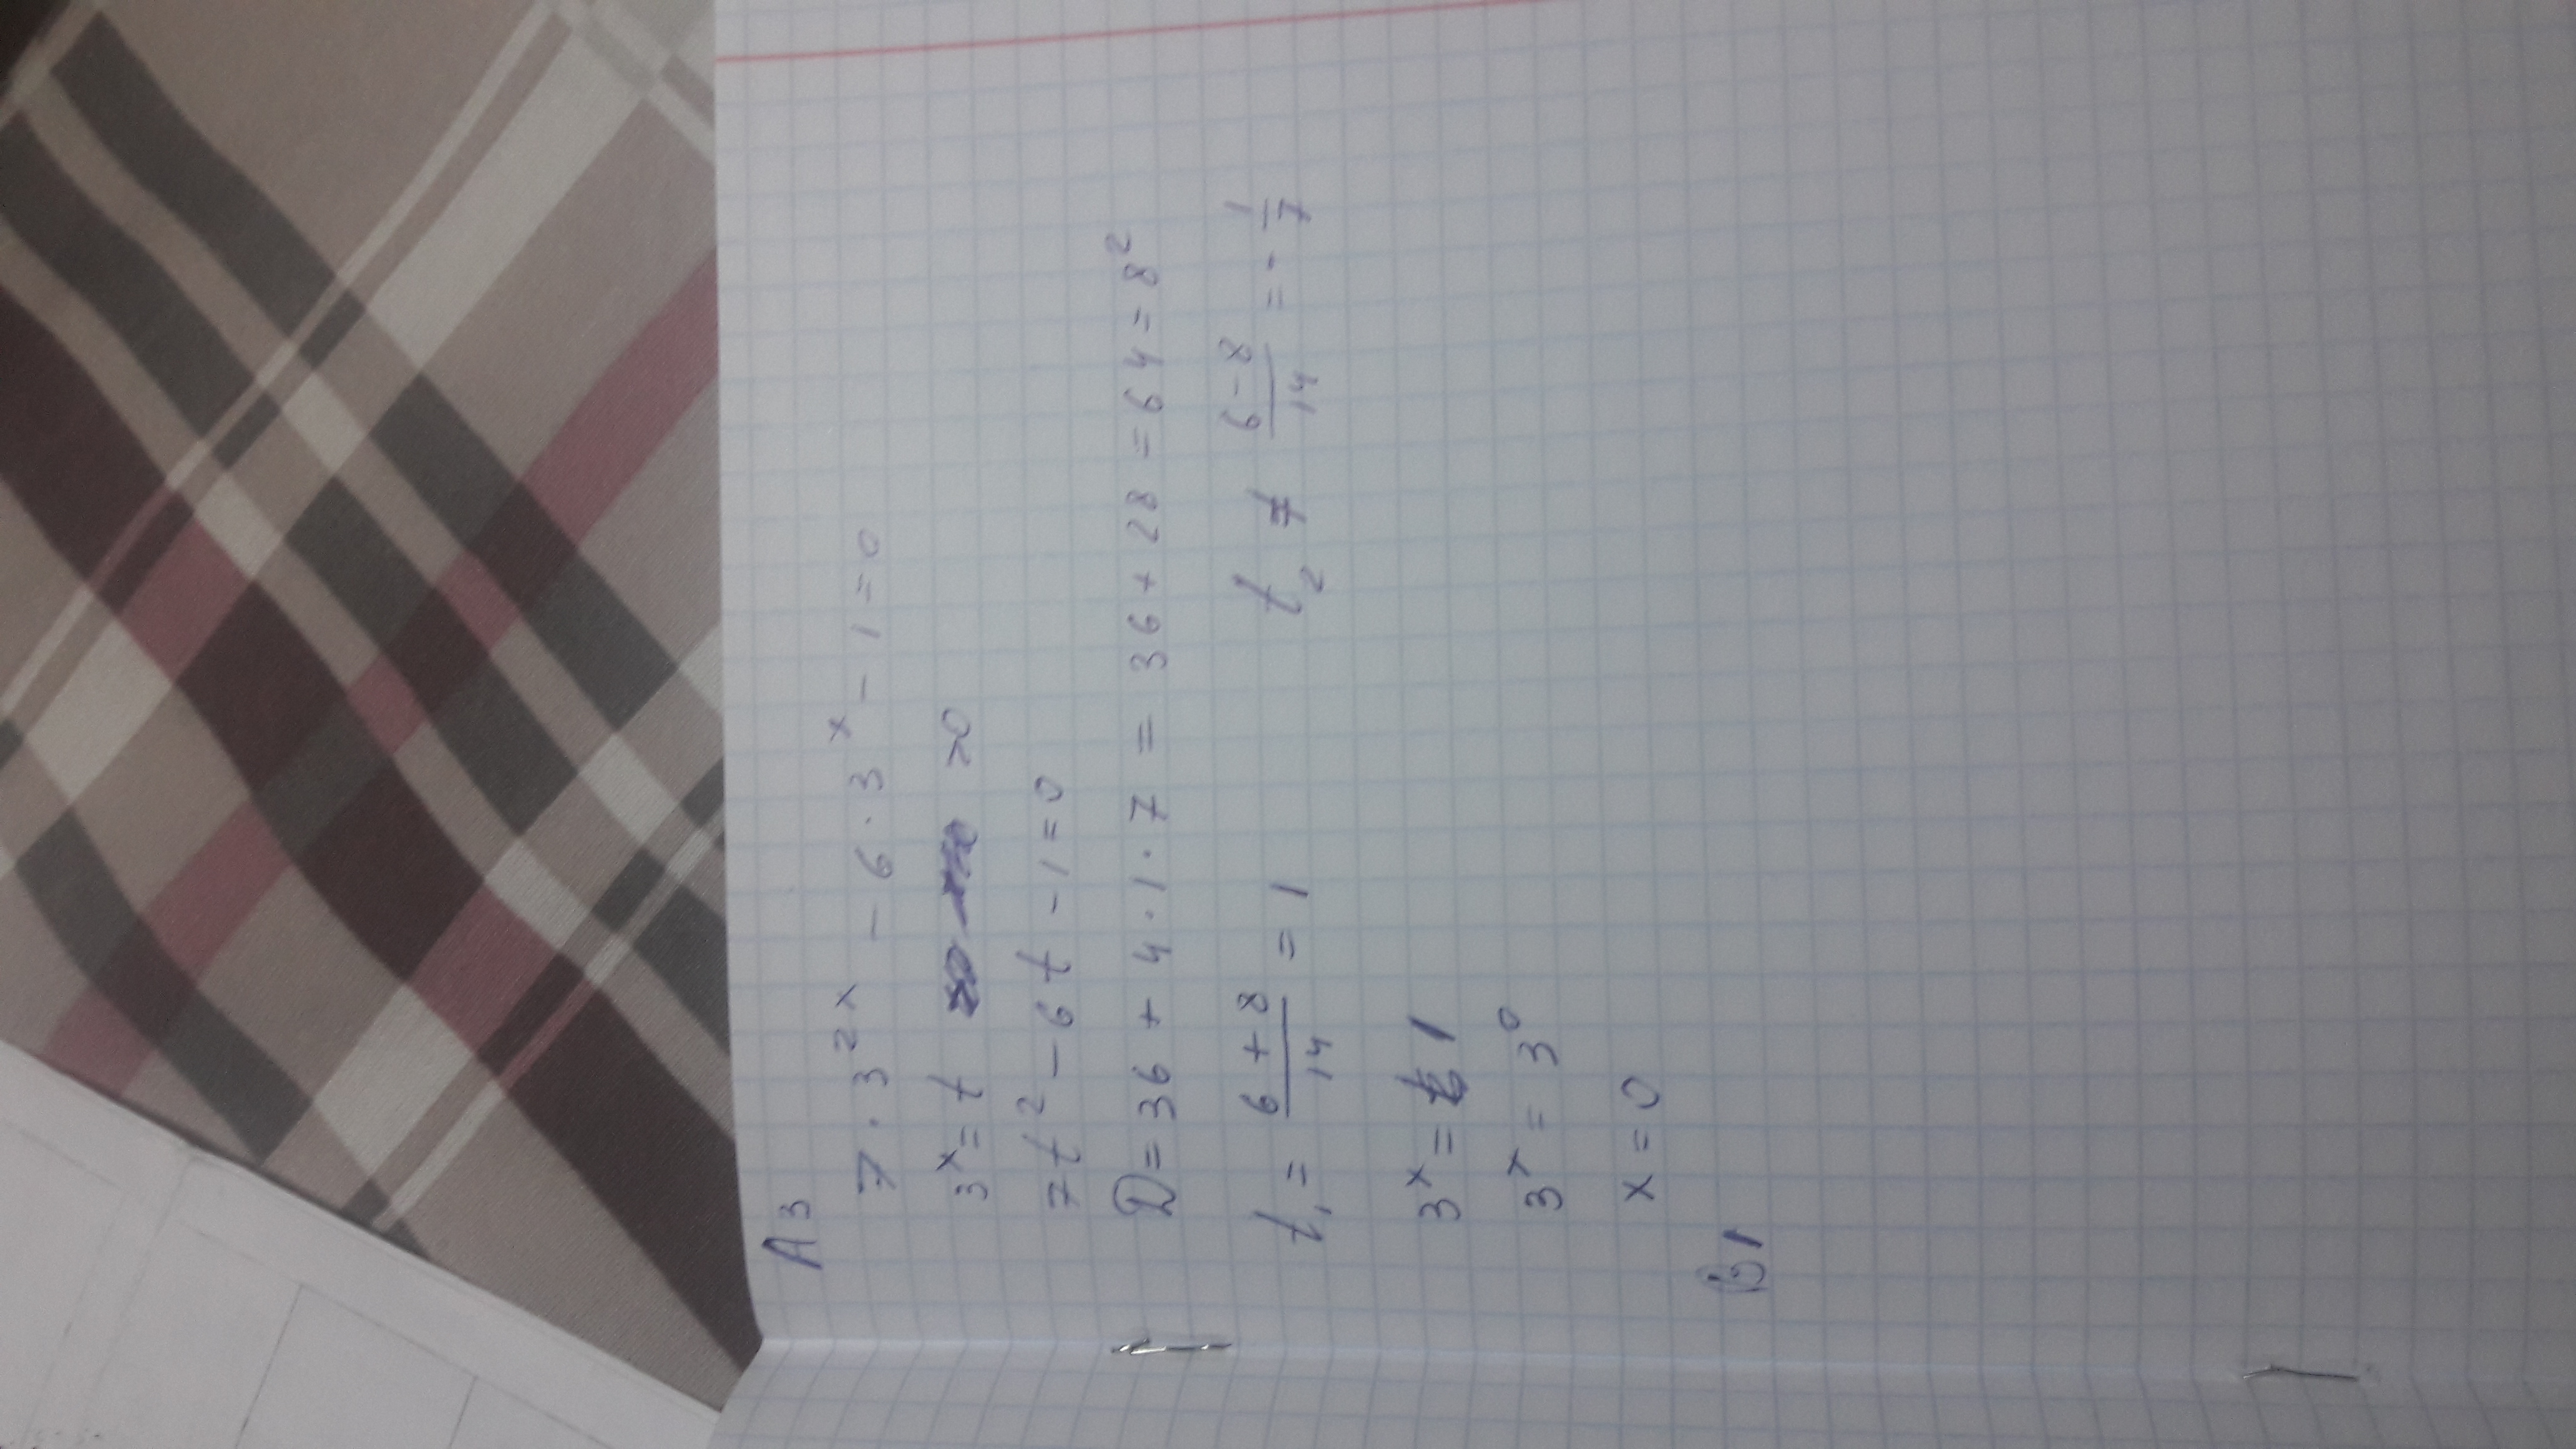 А3
7 · 3^{2x} - 6 · 3^x - 1 = 0
3^x = t > 0
7t^2 - 6t - 1 = 0
D = 36 + 4 · 1 · 7 = 36 + 28 = 64 = 8^2
t_1 = \frac{6+8}{14} = 1 t_2 \frac{6-8}{14} = - \frac{1}{7}
3^x = 1
3^x = 3^0
x = 0
В1